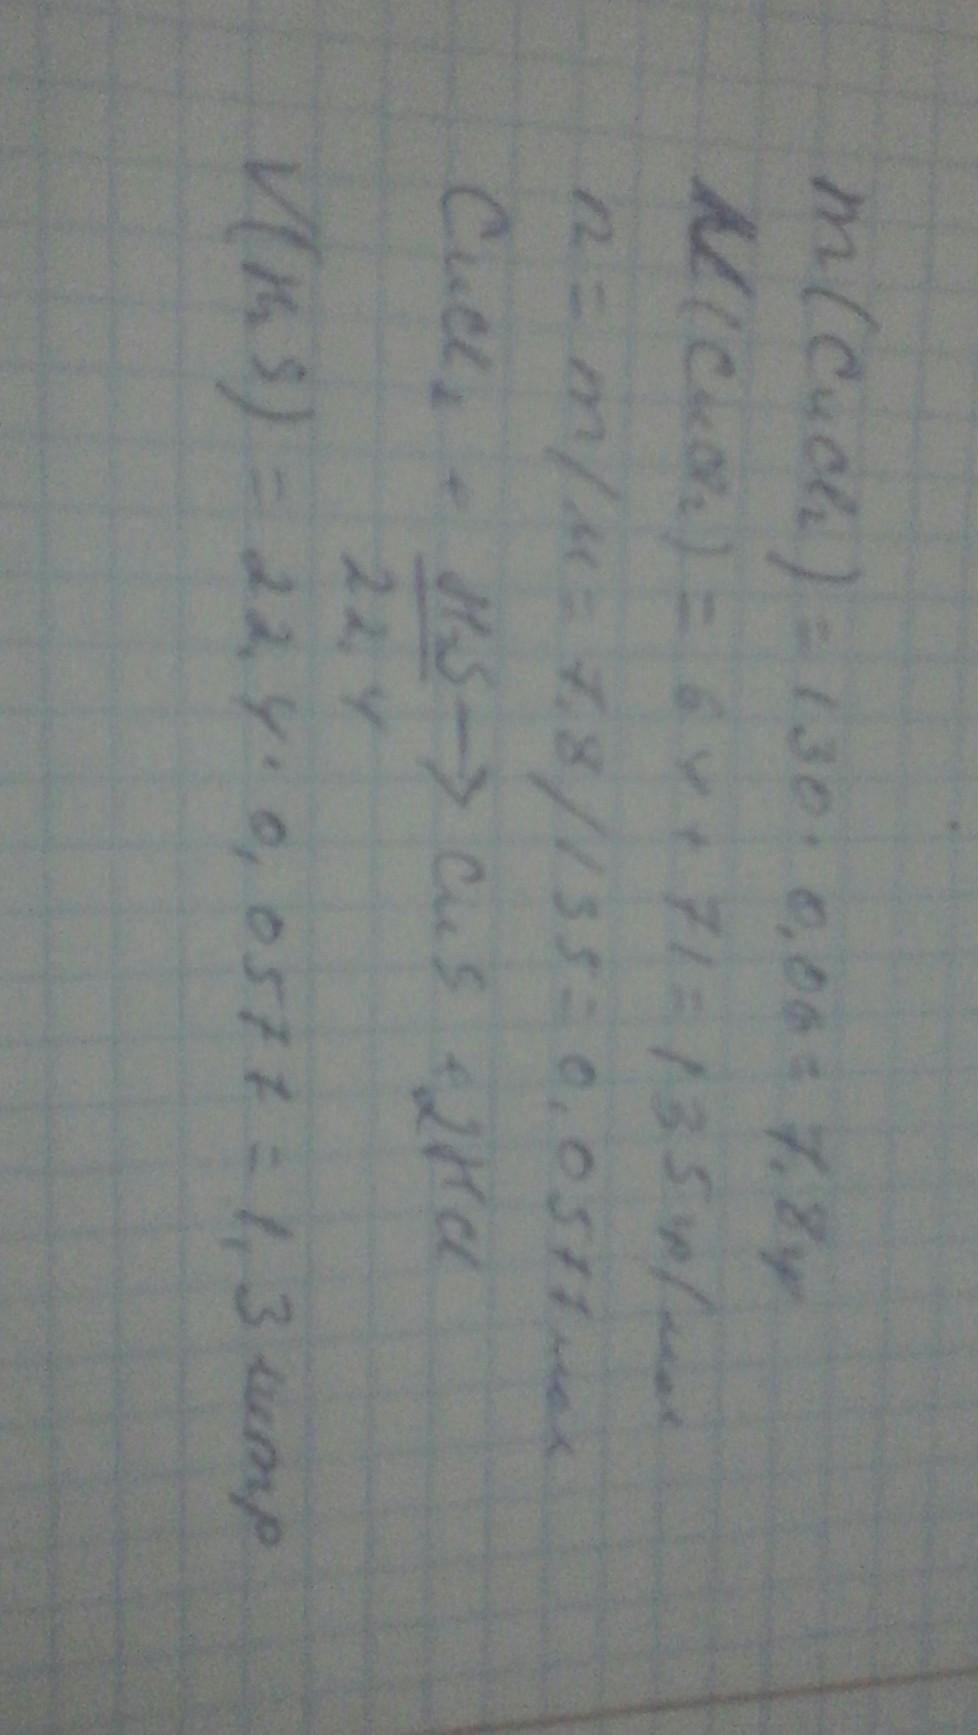 m(CuCl₂) = 130 · 0,06 = 7,8г
M(CuCl₂) = 64 + 71 = 135 г/мол
n = m/M = 7,8/135 = 0,0577мол
CuCl₂ + H₂S → CuS + 2HCl
22,4
V(H₂S) = 22,4 · 0,0577 = 1,3 литр